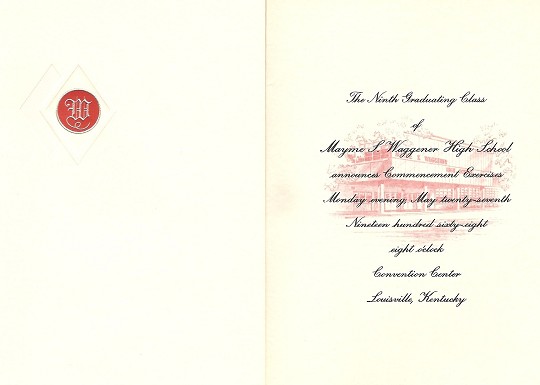 W
The Ninth Graduating Class
of
Mayme S. Waggener High School
announces Commencement Exercises
Monday evening, May twenty-seventh
Nineteen hundred sixty-eight
eight o'clock
Convention Center
Louisville, Kentucky